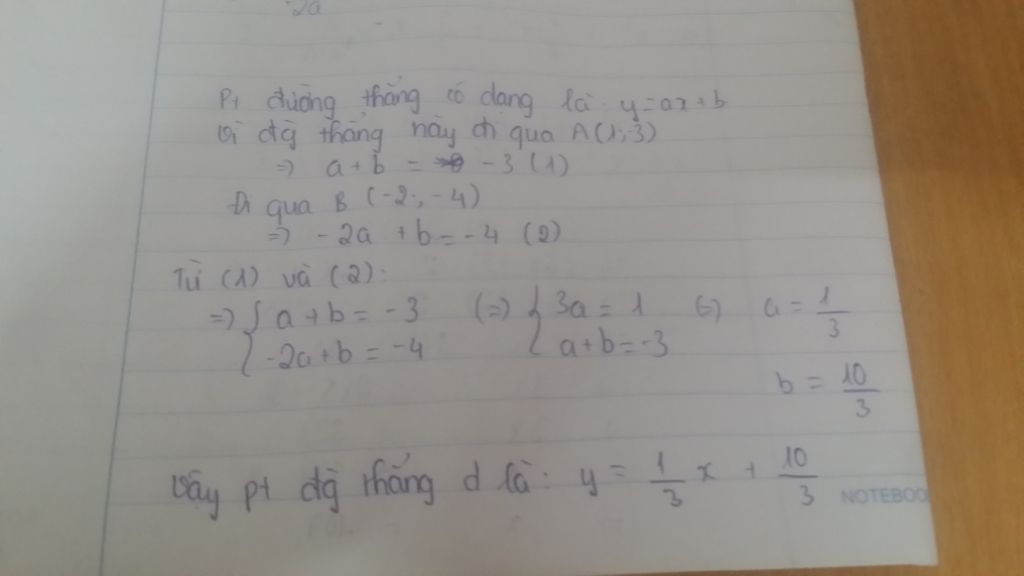 -2a
Pt đường thẳng có dạng là: y = ax + b
Vì đg thẳng này đi qua A (1;-3)
=> a + b = -3 (1)
Đi qua B (-2; -4)
=> -2a + b = -4 (2)
Từ (1) và (2):
=> { a + b = -3 (=> { 3a = 1 (=> a = 1/3
-2a + b = -4 a + b = -3
b = 10/3
Vậy pt đg thẳng d là: y = 1/3 x + 10/3
NOTEBOO